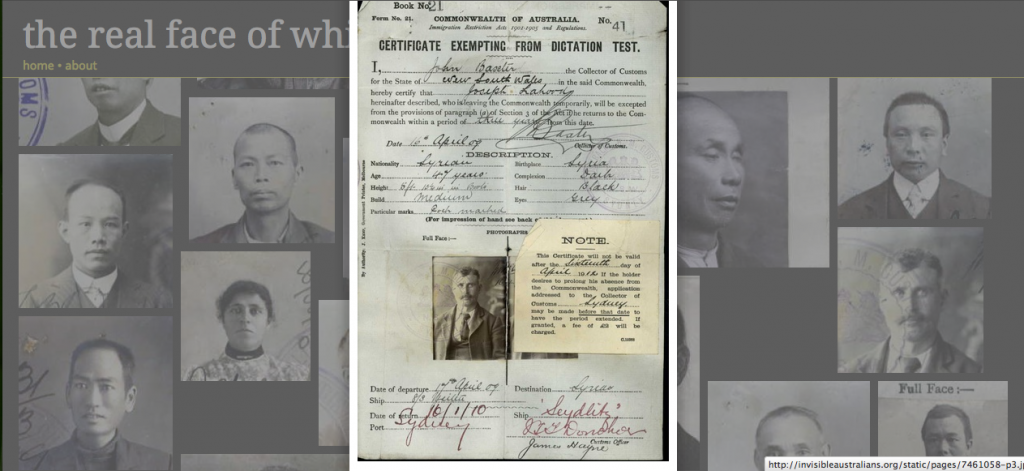 the real face of whi
home • about
OMS
Book No. 21
Form No. 21.
COMMONWEALTH OF AUSTRALIA.
No. 41
Immigration Restriction Acts 1901-1905 and Regulations.
CERTIFICATE EXEMPTING FROM DICTATION TEST.
I, John Baxter the Collector of Customs
for the State of New South Wales, in the said Commonwealth,
hereby certify that Joseph
hereinafter described, who is leaving the Commonwealth temporarily, will be excepted
from the provisions of paragraph (a) of Section 3 of the Act if he returns to the Com-
monwealth within a period of three years from this date.
Baxter
Date April 09
Collector of Customs.
DESCRIPTION.
Nationality Syrian Birthplace Syria
Age 47 years Complexion Dark
Height in boots Hair Black
Build Medium Eyes Grey
Particular marks.
(For impression of hand see back
PHOTOGRAPHS
Full Face:—
NOTE.
This Certificate will not be valid
after the Sixteenth day of
April 1912 If the holder
desires to prolong his absence from
the Commonwealth, application
addressed to the Collector of
Customs Sydney
may be made before that date to
have the period extended. If
granted, a fee of will be
charged.
Date of departure 17th April 09 Destination Syria
Ship
Date of return 16/1/10 Ship "Seydlitz"
Port Sydney
Customs Officer
James
Full Face:—
http://invisibleaustralians.org/static/pages/7461058-p3.j